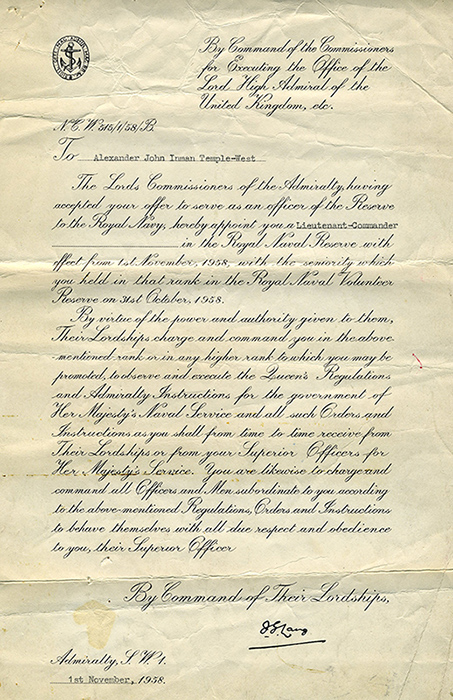 By Command of the Commissioners
for Executing the Office of the
Lord High Admiral of the
United Kingdom, etc.
N.C.W. 515/1/58/B.
To Alexander John Inman Temple-West
The Lords Commissioners of the Admiralty, having
accepted your offer to serve as an officer of the Reserve
to the Royal Navy, hereby appoint you a Lieutenant-Commander
in the Royal Naval Reserve with
effect from 1st November, 1958, with the seniority which
you held in that rank in the Royal Naval Volunteer
Reserve on 31st October, 1958.
By virtue of the power and authority given to them,
Their Lordships charge and command you in the above-
mentioned rank or in any higher rank to which you may be
promoted, to observe and execute the Queen's Regulations
and Admiralty Instructions for the government of
Her Majesty's Naval Service and all such Orders and
Instructions as you shall from time to time receive from
Their Lordships or from your Superior Officers for
Her Majesty's Service. You are likewise to charge and
command all Officers and Men subordinate to you according
to the above-mentioned Regulations, Orders and Instructions
to behave themselves with all due respect and obedience
to you, their Superior Officer
By Command of Their Lordships,
Admiralty, S.W.1.
1st November, 1958.